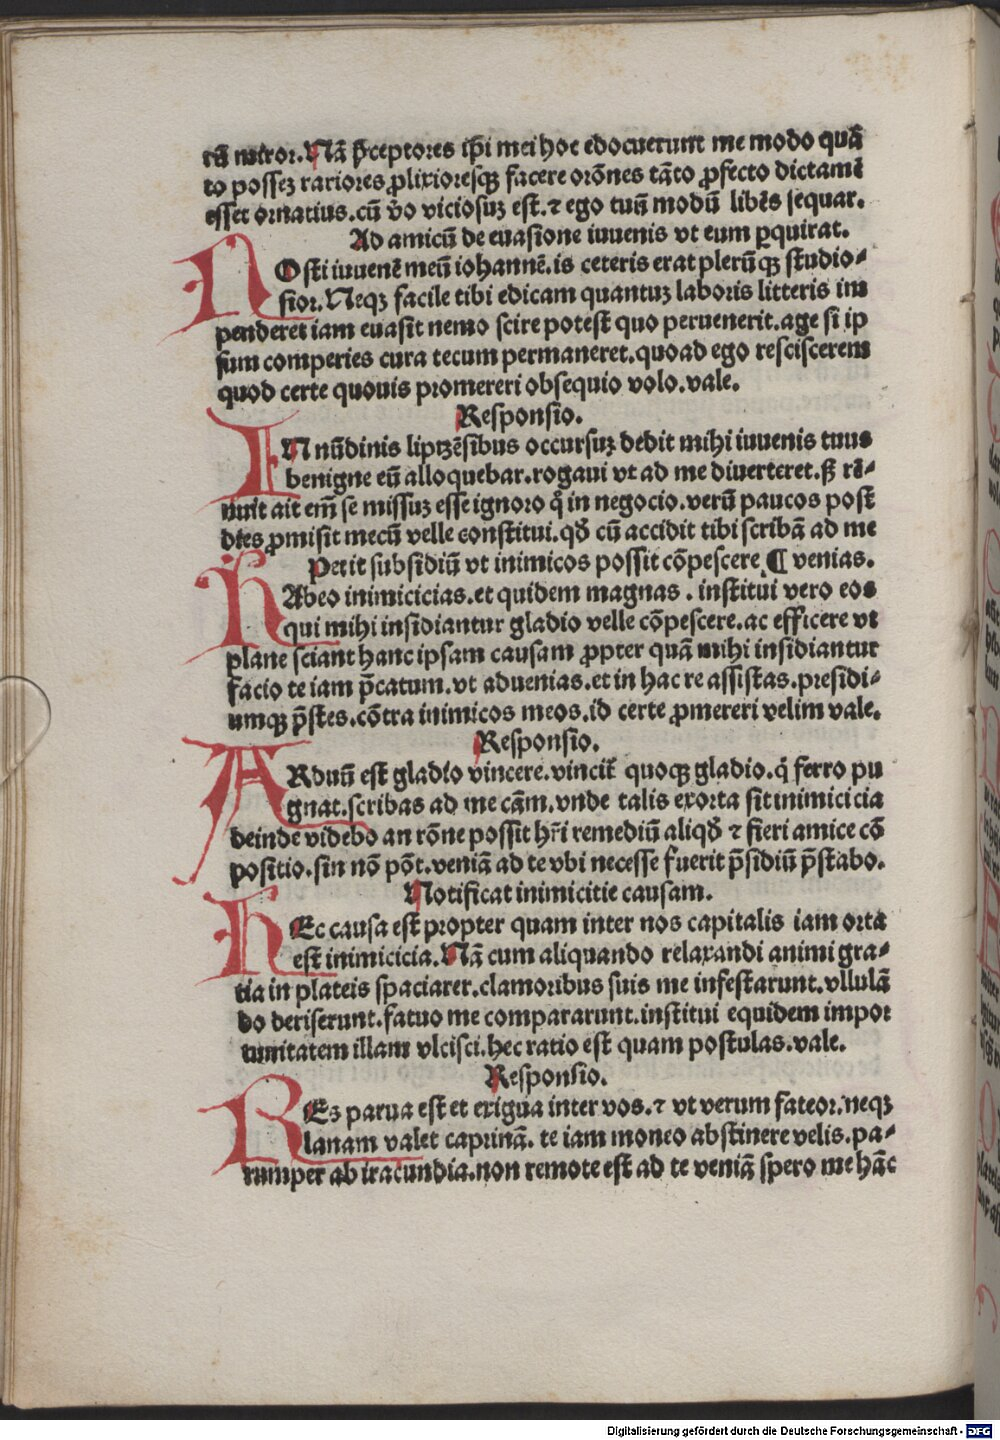 tū miror. Nā p̄ceptores ip̄i mei hoc edocuerunt me modo quā
to possez rariores ꝓlixioresqꝫ facere orōnes tāto ꝓfecto dictamē
esset ornatius. cū v̄o viciosuz est. ⁊ ego tuū modū libēs sequar.
Ad amicū de euasione iuuenis vt eum ꝑquirat.
NOsti iuuenē meū iohannē. is ceteris erat plerūqꝫ studio⸗
sior. Neqꝫ facile tibi edicam quantuz laboris litteris im
penderet iam euasit nemo scire potest quo peruenerit. age si ip
sum comperies cura tecum permaneret. quoad ego resciscerem
quod certe quouis promereri obsequio volo. vale.
Responsio.
IN nūdinis liptzēsibus occursuz dedit mihi iuuenis tuus
benigne eū alloquebar. rogaui vt ad me diuerteret. sꝫ rē⸗
nuit ait em̄ se missuz esse ignoro q̄ in negocio. verū paucos post
dies ꝓmisit mecū velle constitui. qd̄ cū accidit tibi scribā ad me
Petit subsidiū vt inimicos possit cōpescere ¶ venias.
HAbeo inimicicias. et quidem magnas. institui vero eos
qui mihi insidiantur gladio velle cōpescere. ac efficere vt
plane sciant hanc ipsam causam ꝓpter quā mihi insidiantur
facio te iam p̄catum. vt aduenias. et in hac re assistas. presidi⸗
umqꝫ p̄stes. cōtra inimicos meos. id certe ꝓmereri velim vale.
Responsio.
ARduū est gladio vincere. vincit̄ quoqꝫ gladio. q̄ ferro pu
gnat. scribas ad me cām. vnde talis exorta sit inimicicia
deinde videbo an rōne possit hr̄i remediū aliqd̄ ⁊ fieri amice cō
positio. sin nō pōt. veniā ad te vbi necesse fuerit p̄sidiū p̄stabo.
Notificat inimicitie causam.
HEc causa est propter quam inter nos capitalis iam orta
est inimicicia. Nā cum aliquando relaxandi animi gra⸗
tia in plateis spaciarer. clamoribus suis me infestarunt. vllulā
do deriserunt. fatuo me compararunt. institui equidem impor
tunitatem illam vlcisci. hec ratio est quam postulas. vale.
Responsio.
REs parua est et exigua inter vos. ⁊ vt verum fateor. neqꝫ
lanam valet caprinā. te iam moneo abstinere velis. pa⸗
rumper ab iracundia. non remote est ad te veniā spero me hāc
Digitalisierung gefördert durch die Deutsche Forschungsgemeinschaft - DFG